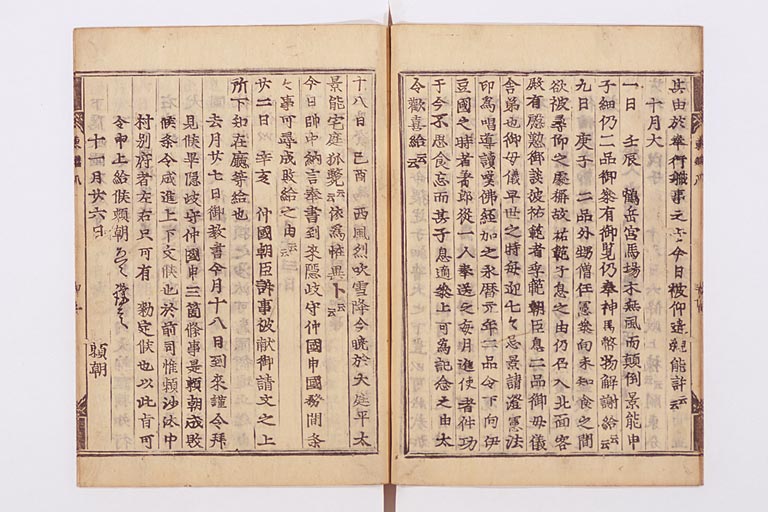 其由於奉行職事之云々今日被仰遣親能許云云
十月大
一日 壬辰 鶴岳宮馬場木無風而顛倒景能申
子細仍二品御參有御覽仍奉神馬幣物解謝給云云
九日 庚子 二品外甥僧任憲參向未知食之間
欲被尋仰之處稱故祐範子息之由仍召入北面客
殿有慇懃御談彼祐範者季範朝臣息二品御母儀
舎弟也御母儀早世之時每迎七々忌景請澄憲法
印爲唱導讚嘆佛經加之永曆元年二品令下向伊
豆國之時者差郎從一人奉送之每月進使者件功
于今不思食忘而其子息適參上可爲記念之由太
令歡喜給云云
十八日 己酉 西風烈吹雪降今曉於大庭平太
景能宅庭狐斃云云依爲怪異卜云云
今日帥中納言奉書到來隱岐守仲國申國務間条
々事可尋成敗給之由云云
廿二日 辛亥 仲國朝臣訴事被獻御請文之上
所下知在廳等給也
去月廿七日御教書今月十八日到來謹令拜
見候畢隱岐守仲國申三箇條事是賴朝成敗
候條令成進上下文候也於前司惟賴沙汰中
村別府者左右只可有 勅定候也以此旨可
令申上給候賴朝
十一月廿六日 賴朝